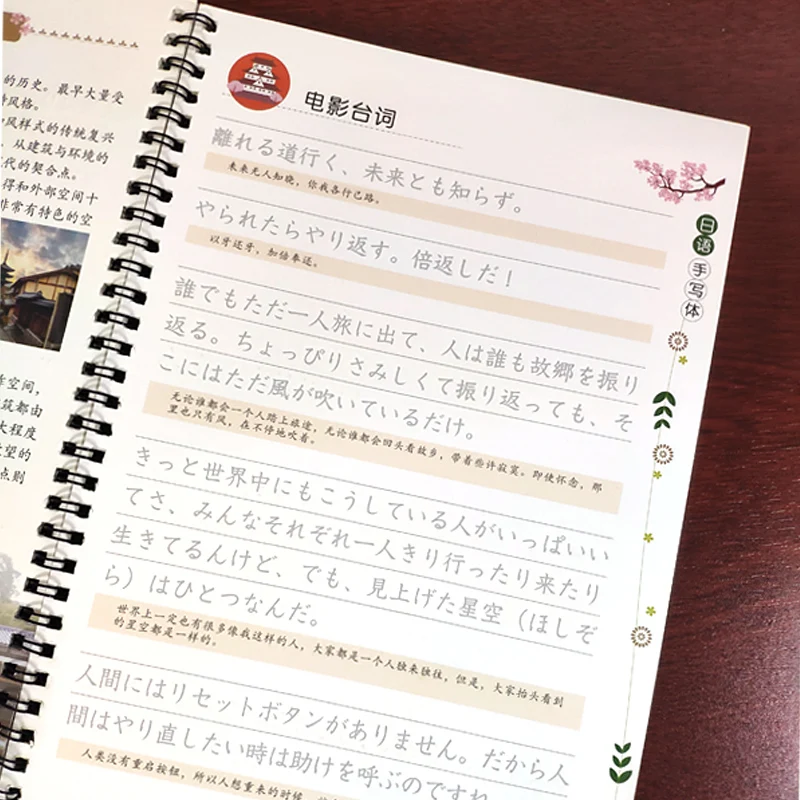 的历史。最早大量受
风格。
风样式的传统复兴
，从建筑与环境的
代的契合点。
得和外部空间十
非常有特色的空
空间，
筑都由
大程度
望的
点则
电影台词
離れる道行く、未来とも知らず。
未来无人知晓，你我各行己路。
やられたらやり返す。倍返しだ！
以牙还牙，加倍奉还。
誰でもただ一人旅に出て、人は誰も故郷を振り
返る。ちょっぴりさみしくて振り返っても、そ
こにはただ風が吹いているだけ。
无论谁都会一个人踏上旅途，无论谁都会回头看故乡，带着些许寂寞。即使怀念，那
里也只有风，在不停地吹着。
きっと世界中にもこうしている人がいっぱいい
てさ、みんなそれぞれ一人きり行ったり来たり
生きてるんけど、でも、見上げた星空（ほしぞ
ら）はひとつなんだ。
世界上一定也有很多像我这样的人，大家都是一个人独来独往，但是，大家抬头看到
的星空都是一样的。
人間にはリセットボタンがありません。だから人
間はやり直したい時は助けを呼ぶのですね
人类没有重启按钮，所以人想重来的时候
日语手写体